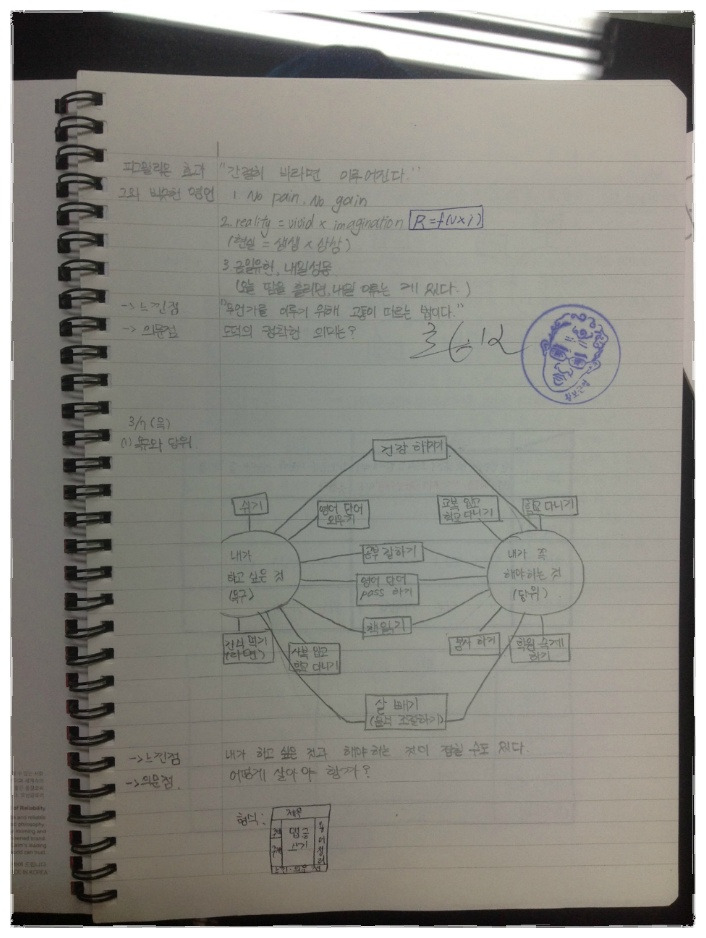 피그말리온 효과 "간절히 바라면 이루어진다."
그외 비슷한 명언 1. No pain, No gain
2. reality = vivid × imagination R=f(V×I)
(현실 = 생생 × 상상)
3. 금일유한, 내일성용
(오늘 땀을 흘리면, 내일 이루는 게 있다.)
→느낀점 "무언가를 이루기 위해 고통이 따르는 법이다."
→의문점 도덕의 정확한 의미는?
3/7(목)
(1) 욕구와 당위
건강하기
쉬기
영어 단어 외우기
교복 입고 학교 다니기
학교 다니기
내가
하고 싶은 것
(욕구)
공부 잘하기
영어 단어 pass 하기
책읽기
내가 꼭
해야하는 것
(당위)
간식 먹기
사복 입고 학교 다니기
봉사 하기
학원 숙제 하기
살 빼기
→느낀점 내가 하고 싶은 것과 해야 하는 것이 겹칠 수도 있다.
→의문점 어떻게 살아야 할까?
형식:
제목